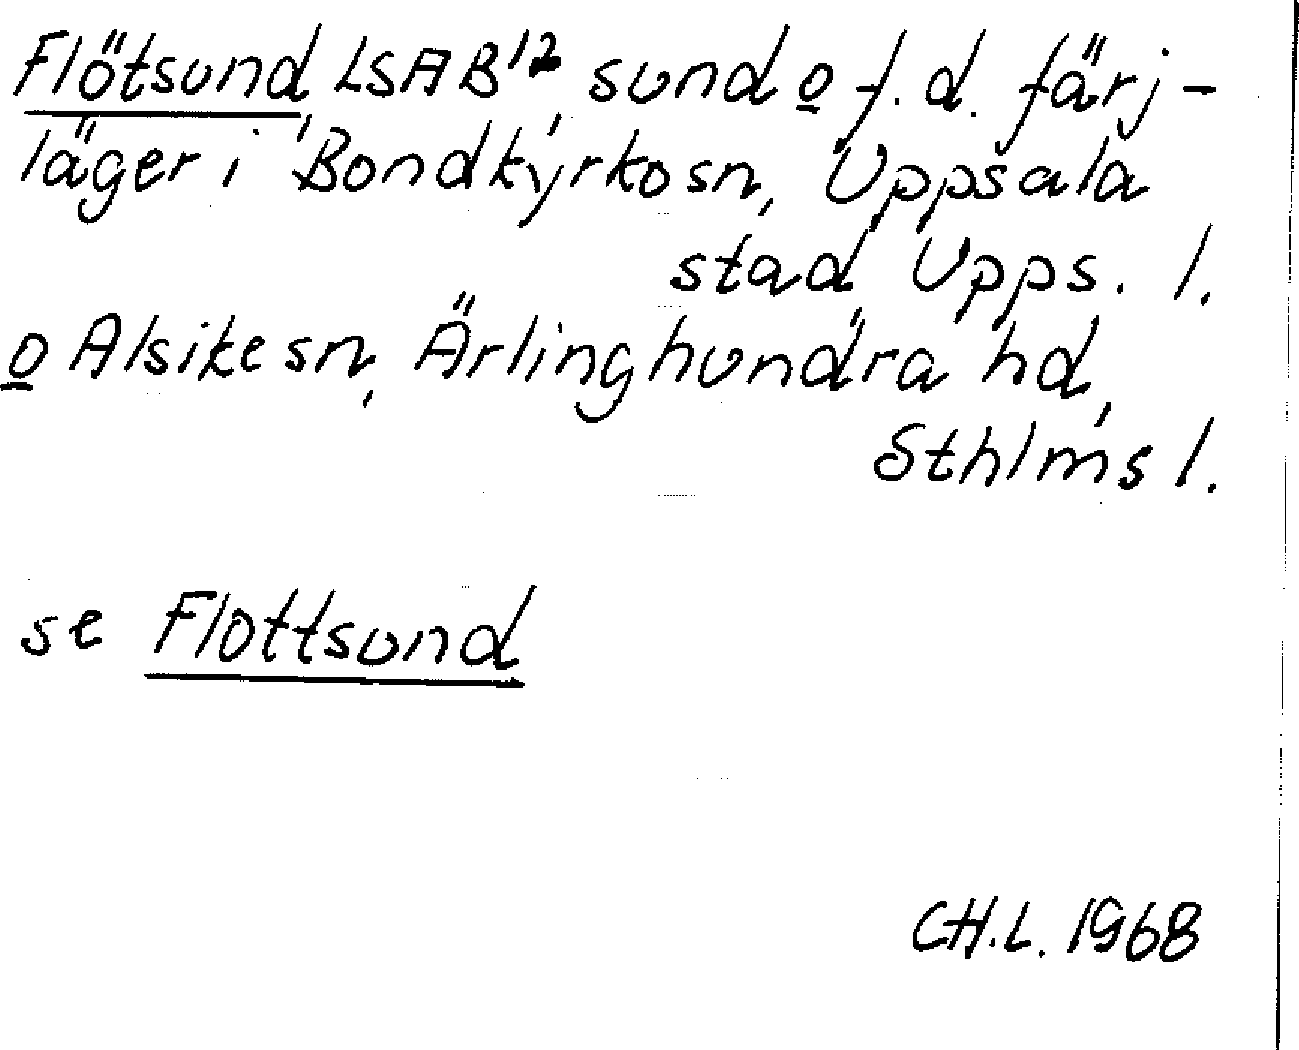 Flötsund, LSAB¹², sund o f.d. färj-
läger i Bondkyrko sn, Uppsala
stad Upps. l.
o Alsike sn, Ärlinghundra hd,
Sthlms l.
se Flottsund
CH.L. 1968